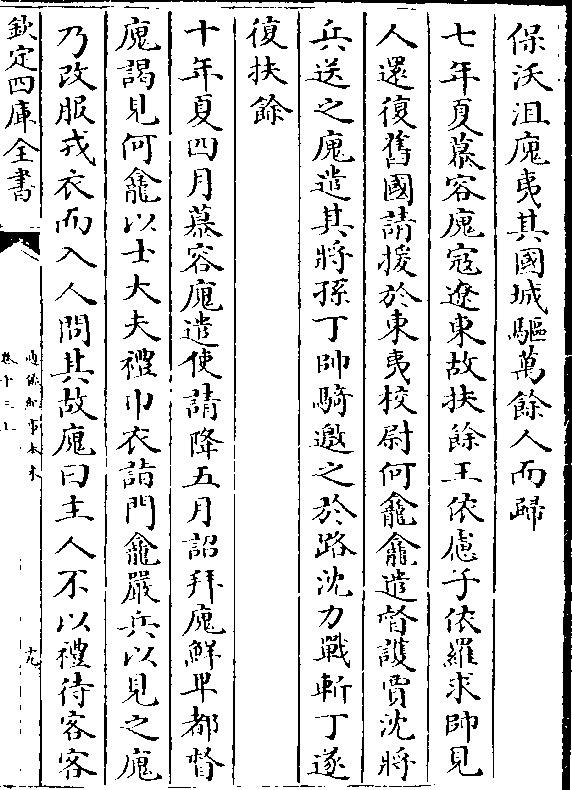 保沃沮廆夷其國城驅萬餘人而歸
七年夏慕容廆寇遼東故扶餘王依慮子依羅求帥見
人還復舊國請援於東夷校尉何龕龕遣督護賈沈將
兵送之廆遣其將孫丁帥騎邀之於路沈力戰斬丁遂
復扶餘
十年夏四月慕容廆遣使請降五月詔拜廆鮮卑都督
廆謁見何龕以士大夫禮巾衣詣門龕嚴兵以見之廆
乃改服戎衣而入人問其故廆曰主人不以禮待客客
欽定四庫全書
卷十三上
十九